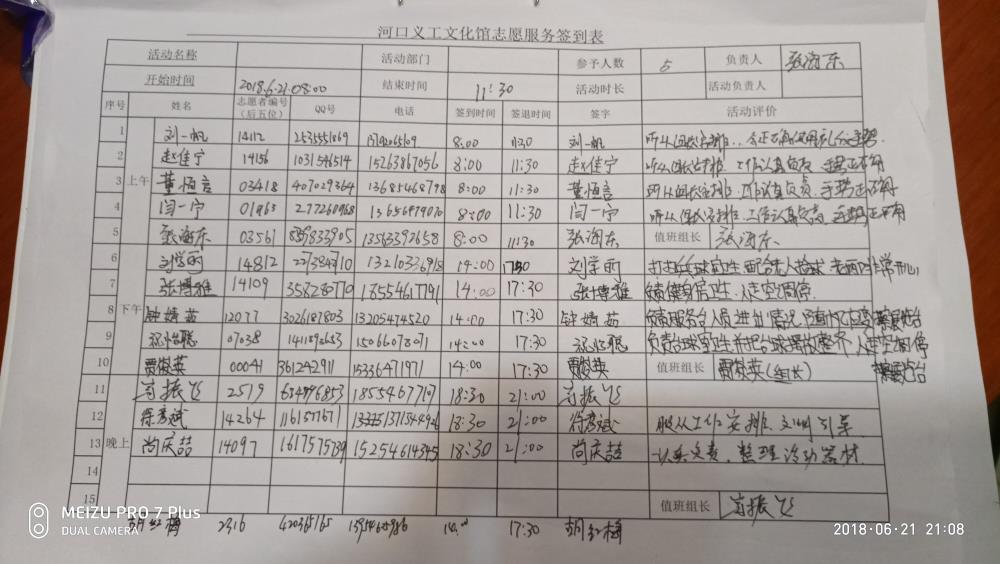 河口义工文化馆志愿服务签到表
活动名称 活动部门 参予人数 5 负责人 张海东
开始时间 2018.6.21.08:00 结束时间 11:30 活动时长 活动负责人
序号 姓名 志愿者编号（后五位） QQ号 电话 签到时间 签退时间 签字 活动评价
1 刘一帆 14112 8:00 1130 刘一帆
2 赵佳宁 14156 1031546514 15263867056 8:00 11:30 赵佳宁 工作认真负责
3 上午 董恒言 03418 407029364 13685468778 8:00 11:30 董恒言 听从组长安排.工作认真负责.
4 闫一宁 01963 277260968 13656479070 8:00 11:30 闫一宁 听从组长安排.工作认真负责.
5 张海东 03561 13563392658 8:00 11:30 张海东 值班组长 张海东
6 刘学雨 14812 13210336918 14:00 刘学雨
7 张博雅 14109 358280770 18554617791 14:00 17:30 张博雅 负责健身房卫生.人走空调停.
8 下午 钟婧茹 12077 3026187803 13205474520 14:00 17:30 钟婧茹 负责服务台人员进出情况
9 07038 1411892653 15066073071 14:00 17:30 人走空调停
10 贾俊英 00041 361242911 15336471971 14:00 17:30 贾俊英 值班组长 贾俊英(组长)
11 尚振飞 2519 634996853 18554677107 18:30 21:00 尚振飞
12 徐彦斌 14264 1161577671 18:30 21:00 徐彦斌 服从工作安排
13 晚上 尚庆喆 14097 1617575739 15254614345 18:30 21:00 尚庆喆 认真负责.整理活动器材
14
15 值班组长 尚振飞
胡红梅 2316 420365165 14:00 17:30 胡红梅
MEIZU PRO 7 Plus
DUAL CAMERA
2018-06-21 21:08